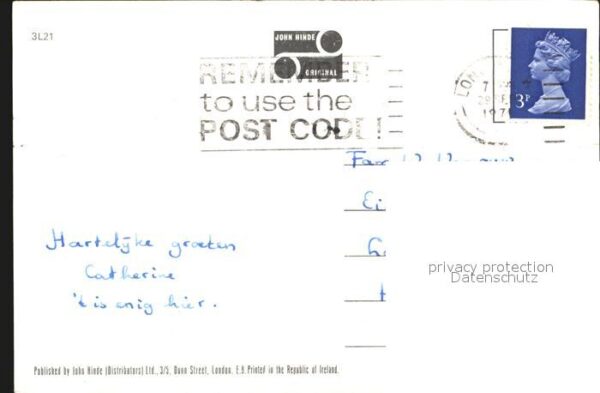 3L21
JOHN HINDE
ORIGINAL
REMEMBER
to use the
POST CODE!
3P
Fam
Ei
Hartelijke groeten
Catherine
't is enig hier.
privacy protection
Datenschutz
Published by John Hinde (Distributors) Ltd., 3/5, Dunn Street, London, E.8. Printed in the Republic of Ireland.